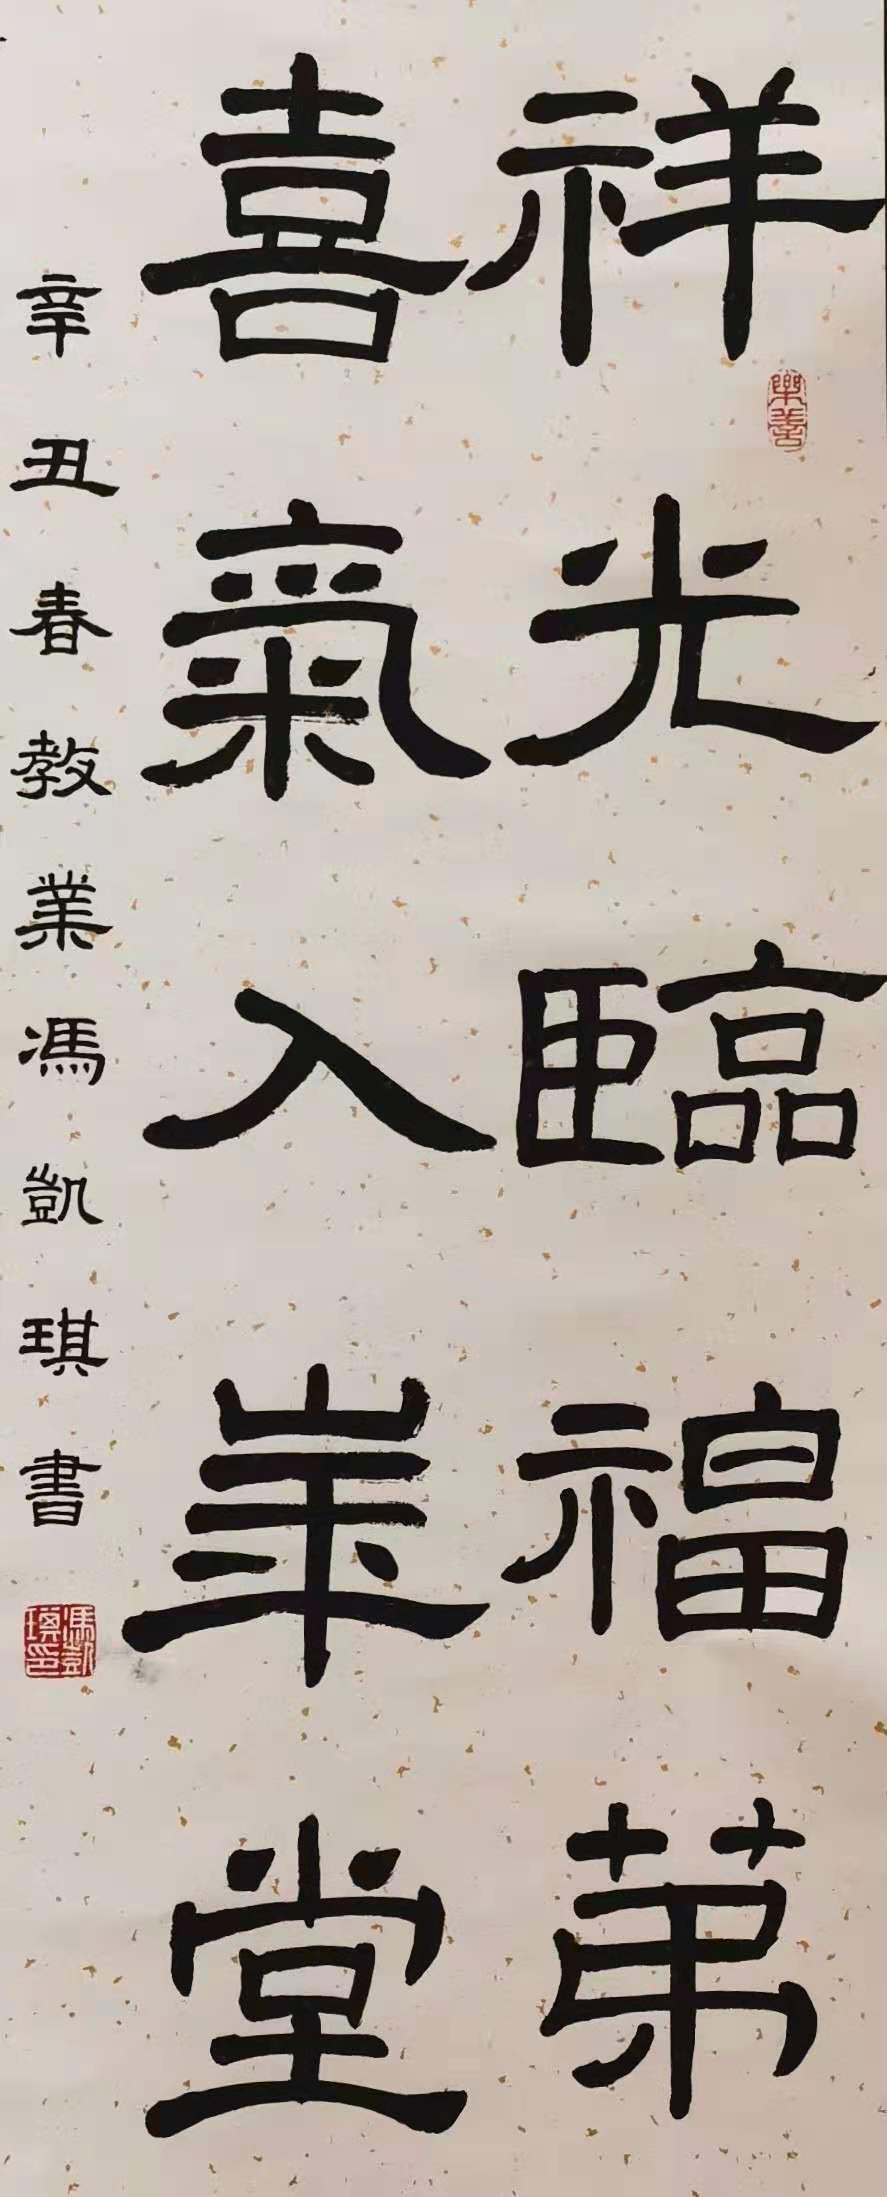 祥光臨福第
樂善
喜氣入華堂
辛丑春教業馮凱琪書
馮凱琪印